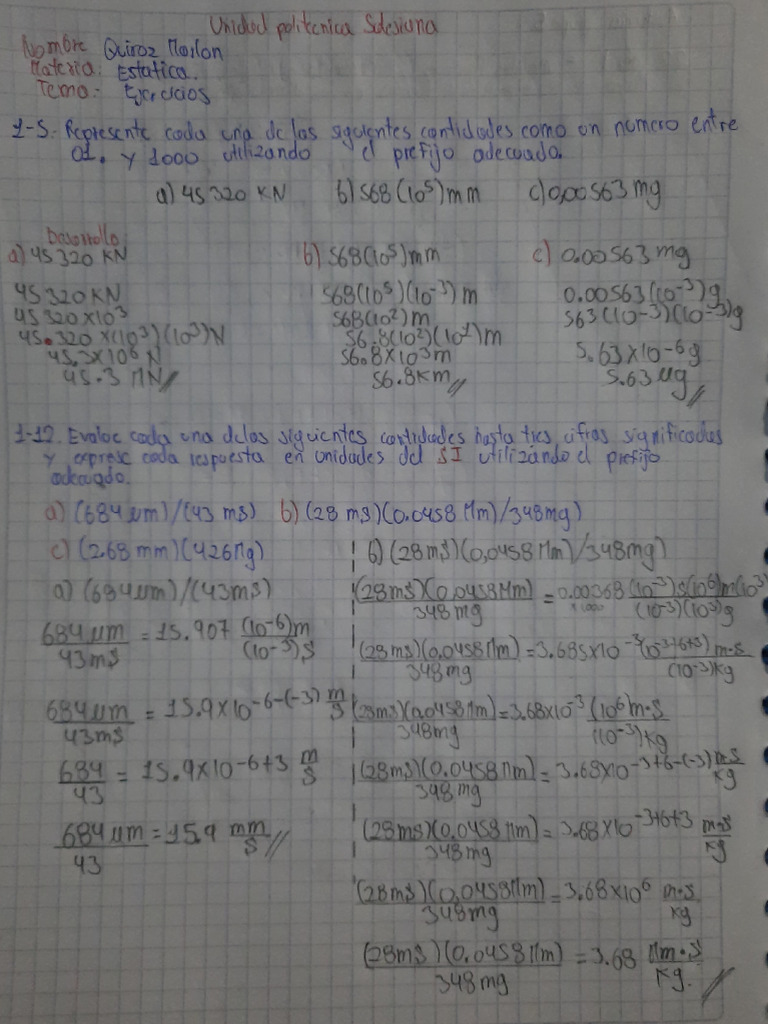 Unidad politecnica Salesiana
Nombre Quiroz Marlon
Materia: Estatica.
Tema:- Ejercicios
1-5. Represente cada una de las siguientes cantidades como un numero entre
01. y 1000 utilizando el prefijo adecuado.
a) 45320 KN b) 568(10⁵)mm c) 0,00563 mg
Desarrollo
a) 45320 KN
45320 KN
45320 x10³
45.320 x(10³)(10³)N
45.3x10⁶ N
45.3 MN
b) 568(10⁵)mm
568(10⁵)(10⁻³) m
568(10²) m
56.8(10²)(10¹) m
56.8x10³m
56.8Km
c) 0.00563 mg
0.00563(10⁻³)g
563(10⁻³)(10⁻³)g
5.63x10⁻⁶g
5.63 μg
1-12. Evalue cada una delas siguientes cantidades hasta tres cifras significadas
y exprese cada respuesta en unidades del SI utilizando el prefijo
adecuado.
a) (684 μm)/(43 ms) b) (28 ms)(0,0458 Mm)/348mg)
c) (2.68 mm)(426Mg)
a) (684 μm)/(43ms)
684 μm/43ms = 15.907 (10⁻⁶)m/(10⁻³)s
684 μm/43ms = 15.9x10⁻⁶⁻⁽⁻³⁾ m/s
684/43 = 15.9x10⁻⁶⁺³ m/s
684 μm/43 = 15.9 mm/s
b) (28ms)(0,0458Mm)/348mg)
(28ms)(0,0458Mm)/348mg = 0.00368 (10⁻³)s(10⁶)m(10³)/(10⁻³)(10³)g
(28ms)(0,0458Mm)/348mg = 3.685x10⁻³(10⁻³⁺⁶⁺³) m·s/(10⁻³)kg
(28ms)(0,0458Mm)/348mg = 3.68x10⁻³ (10⁶m·s/(10⁻³)kg
(28ms)(0.0458Mm)/348mg = 3.68x10⁻³⁺⁶⁻⁽⁻³⁾ m·s/kg
(28ms)(0.0458Mm)/348mg = 3.68x10⁻³⁺⁶⁺³ m·s/kg
(28ms)(0,0458Mm)/348mg = 3.68x10⁶ m·s/kg
(28ms)(0.0458Mm)/348mg = 3.68 Mm·s/Kg.